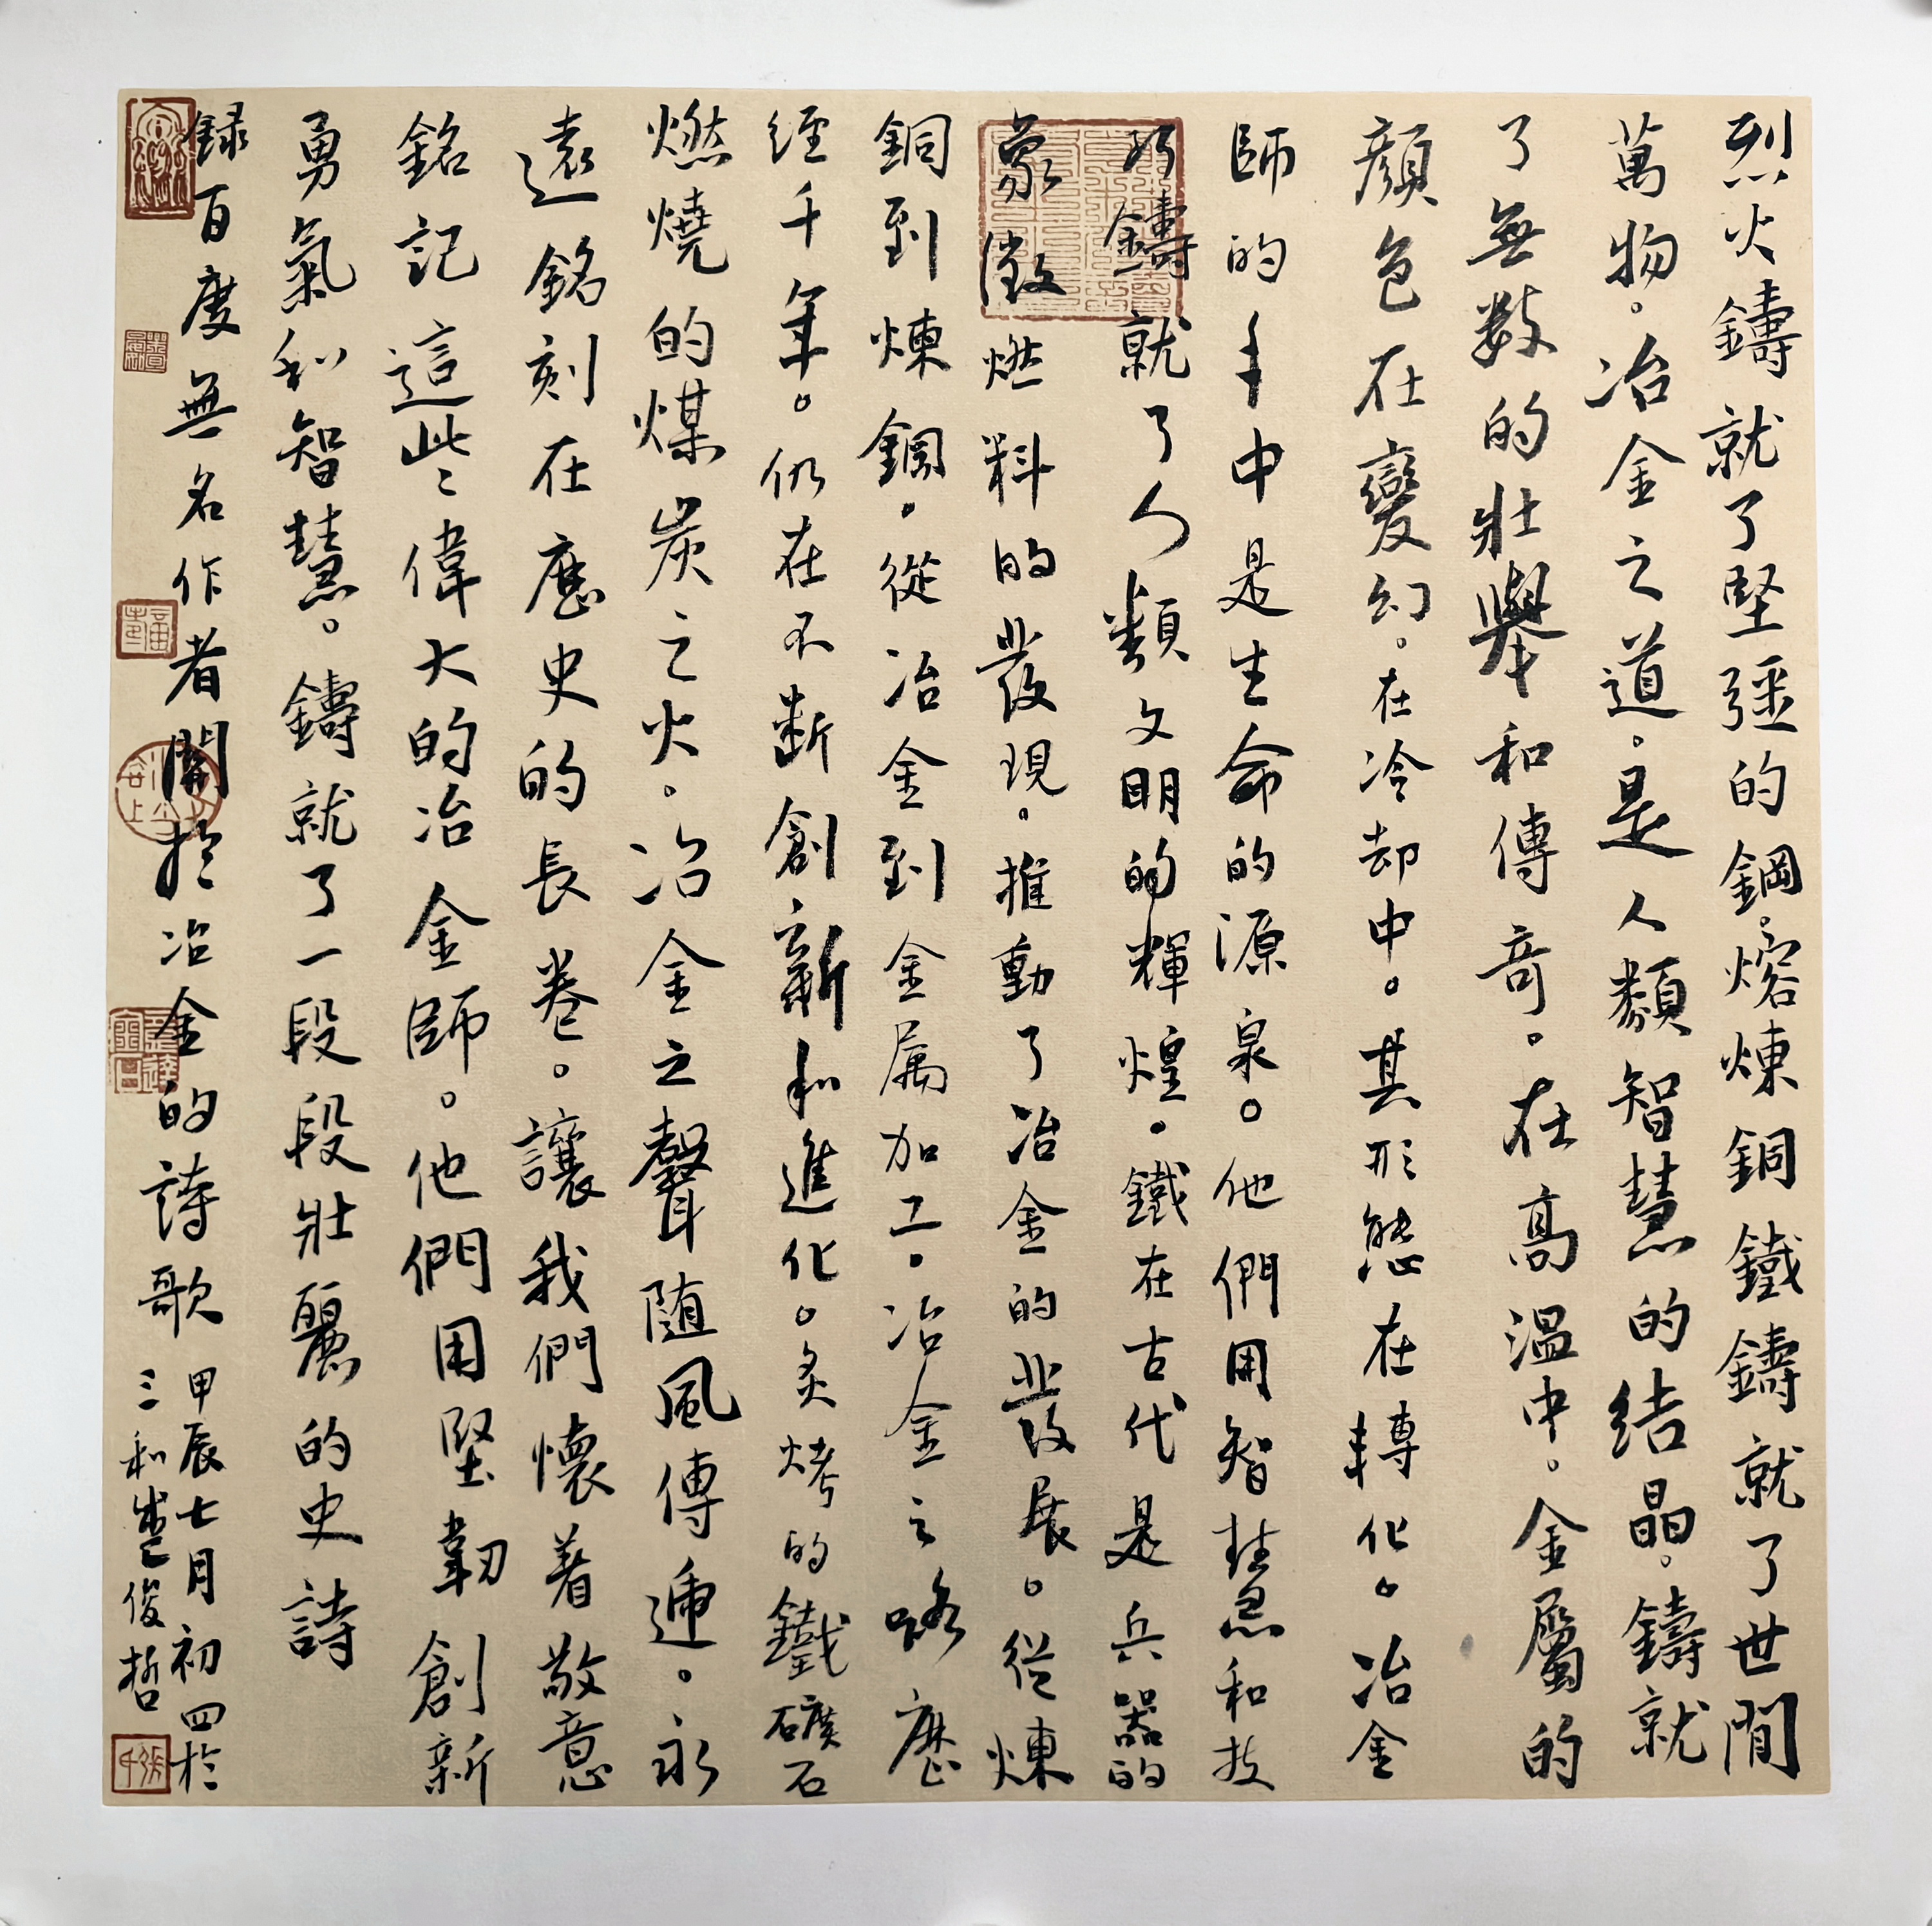 烈火鑄就了堅强的鋼。熔煉銅鐵鑄就了世間
萬物。冶金之道。是人類智慧的结晶。鑄就
了無数的壯舉和傳奇。在高温中。金屬的
顔色在變幻。在冷却中。其形態在轉化。冶金
師的手中是生命的源泉。他們用智慧和技
巧鑄就了人類文明的輝煌。鐵在古代是兵器的
象徵燃料的發現。推動了冶金的發展。從煉
銅到煉鋼。從冶金到金属加工。冶金之路歷
经千年。仍在不断創新和進化。炙烤的鐵礦石
燃燒的煤炭之火。冶金之聲随風傳遞。永
遠銘刻在歷史的長卷。讓我們懷着敬意
銘記這些偉大的冶金師。他們用堅韌創新
勇氣和智慧。鑄就了一段段壯麗的史詩
録百度無名作者關於冶金的詩歌
甲辰七月初四於
三和 俊哲